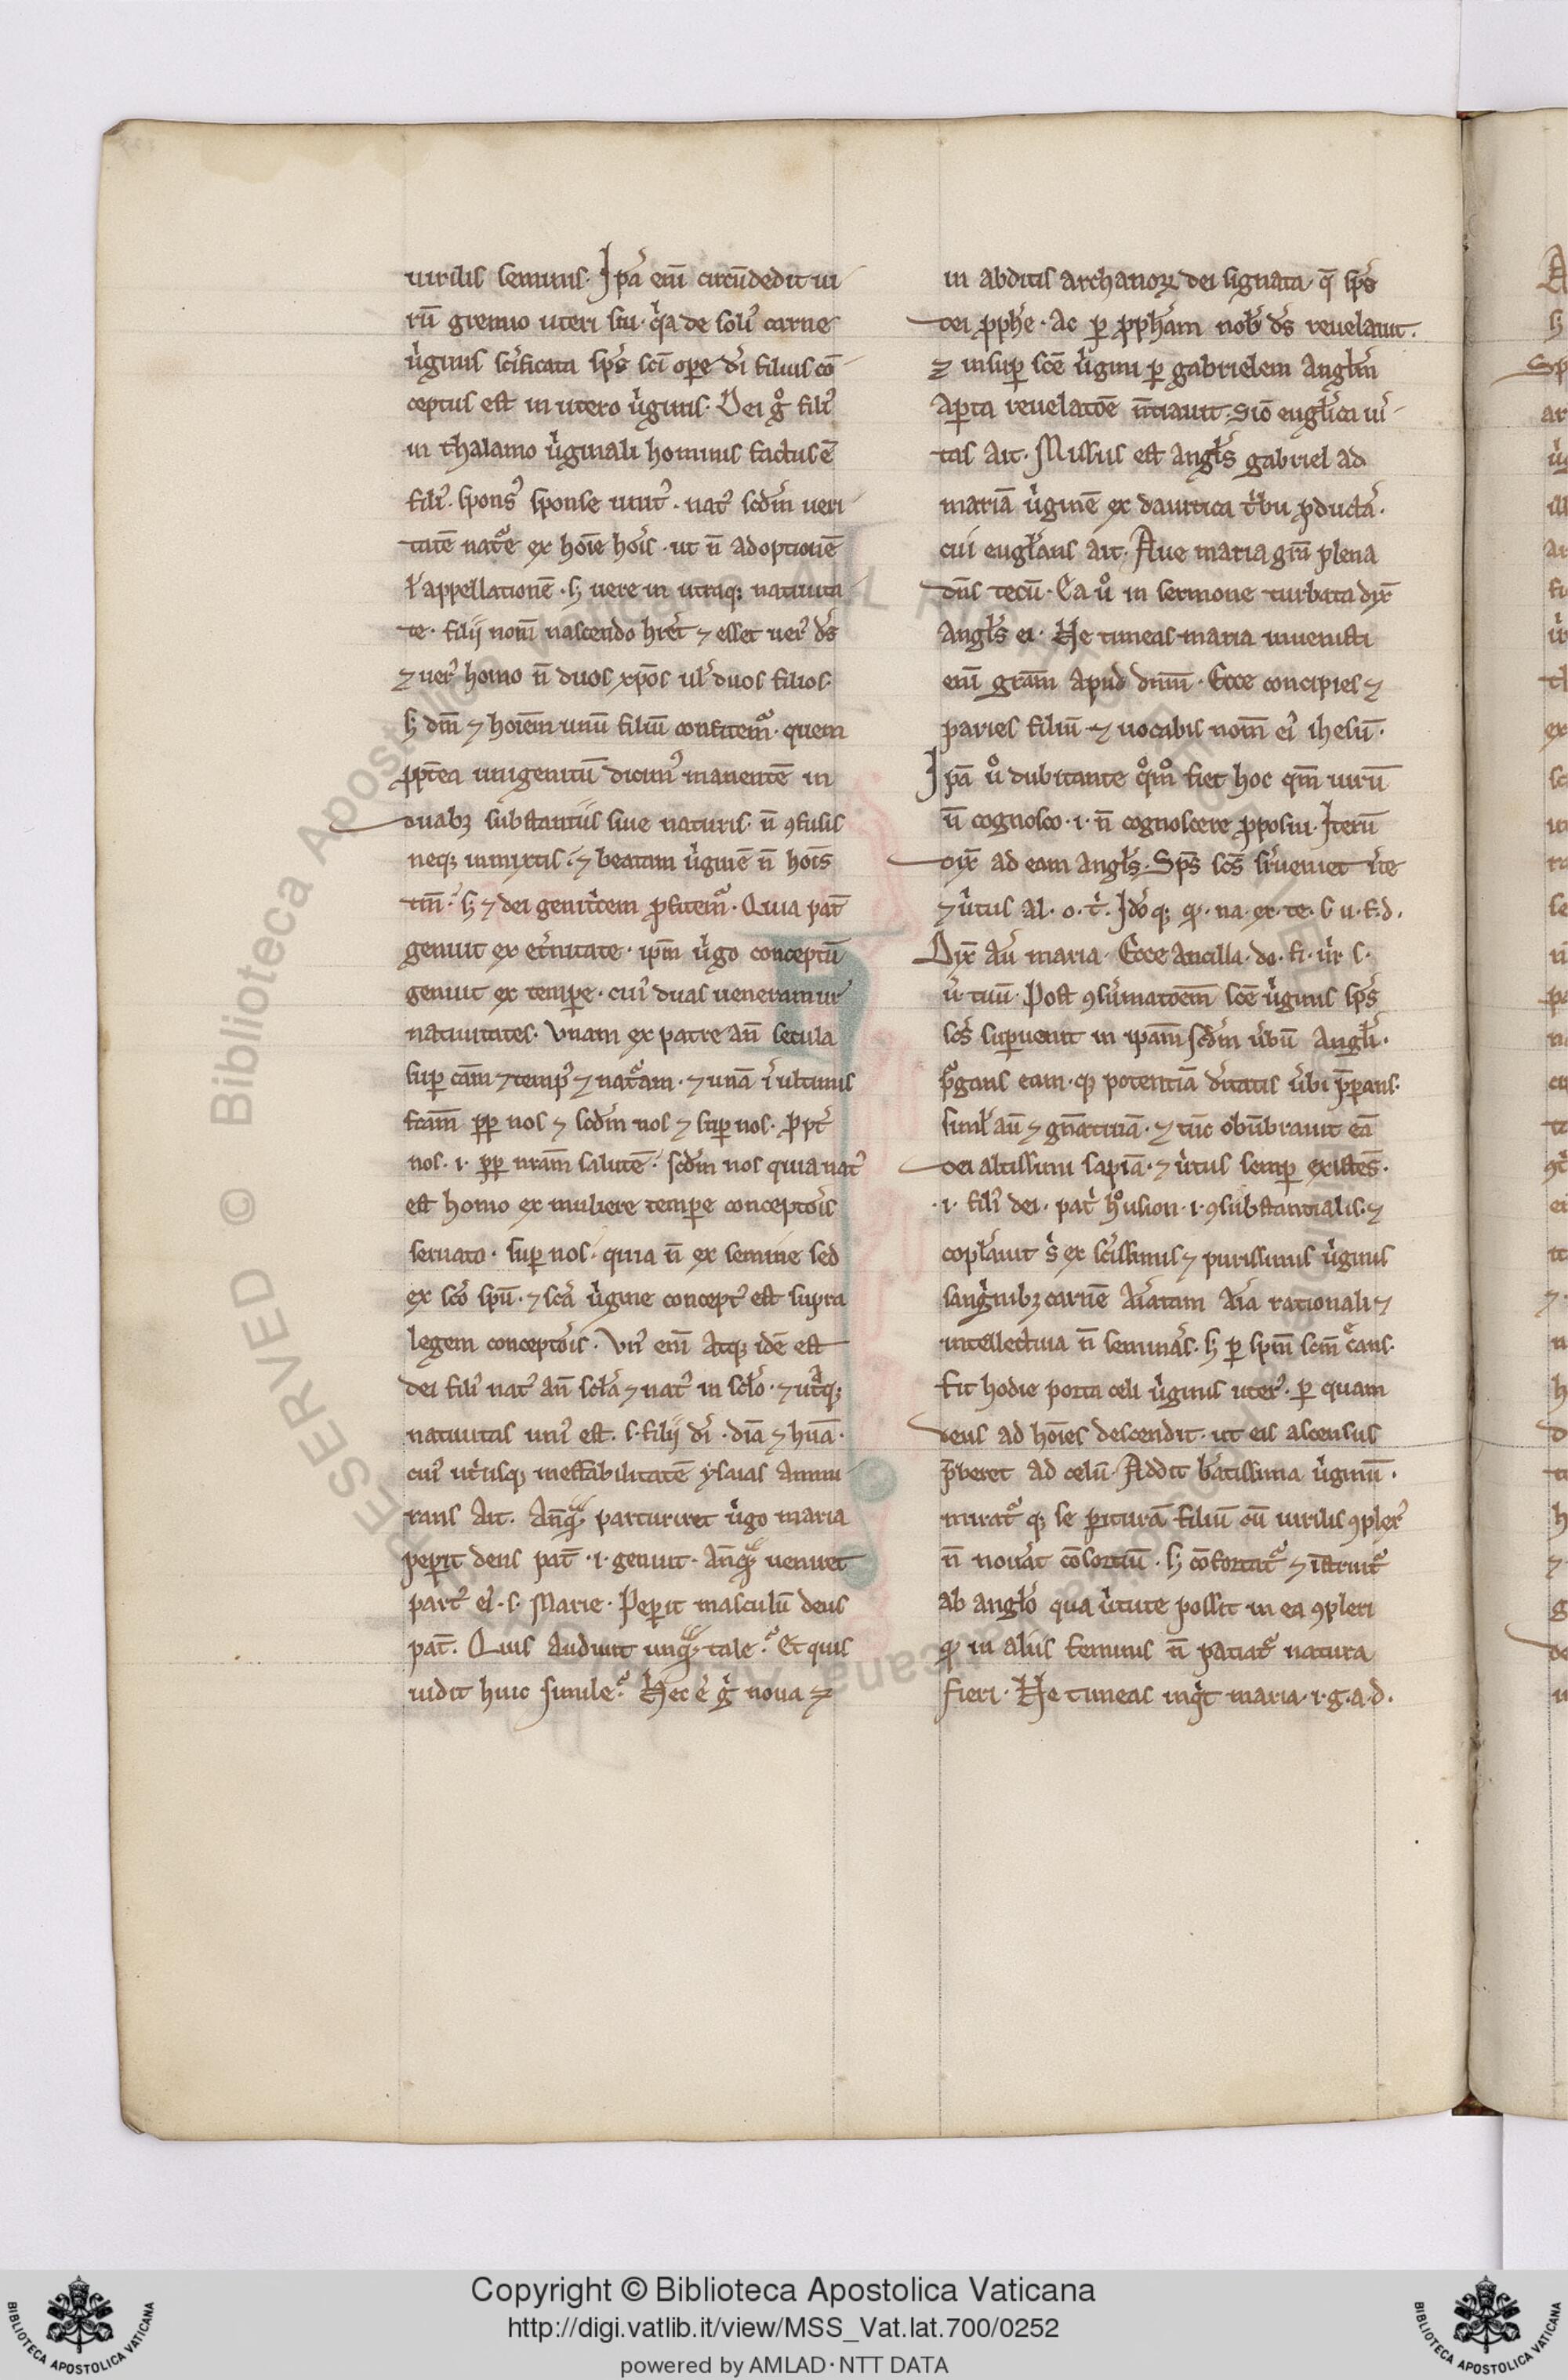 uirilis seminis. Ipā eni̅ circu̅dedit ui
ru̅ gremio uteri sui. q̓a de soli᾽ carne
u̓ginis sc̓ificata sp̄s sci̅ ope d̓i filius co̅
ceptus est in utero u̓ginis. Dei gͦ fili᾽
in thalamo u̓ginali hominis factus e̅
fili᾽. spons᾽ sponse unit᾽. nat᾽ scd̓m ueri
tate̅ nat᷑e ex ho̅ie ho̅is. ut n̅ adoptione̅
l̓ appellatione̅. s; uere in utraq; natiuita
te. filij nom̅ nascendo hr̓et ⁊ esset uer᾽ d̅s
⁊ uer᾽ homo n̅ duos xp̅os ul̓ duos filios.
s; dm̅ ⁊ hoi̅em unu̅ filiu̅ confitem᷑. quem
ꝓpt̅ea unigenitu̅ dicim᾽ manente̅ in
duabꝫ substantiis siue naturis. n̅ ꝯfusis
neq; inmixtis. ⁊ beatam u̓gine̅ n̅ ho̅is
tm̅. s; ⁊ dei genit̓cem ꝓfitem᷑. Quia pat̅
genuit ex et̓nitate. ip̅m u̓go conceptu̅
genuit ex tempe. cui᾽ duas ueneramur
natiuitates. Vnam ex patre an̅ secula
suꝑ ca̅m ⁊ temp᾽ ⁊ nat᷑am. ⁊ una̅ i̓ ultimis
fcam̅ ꝓp nos ⁊ scd̓m nos ⁊ suꝑ nos. ꝓpt̓
nos. i. ꝓp nr̅am salute̅. scd̓m nos quia nat᾽
est homo ex muliere tempe concepto̓is
seruato. suꝑ nos. quia n̅ ex semine sed
ex sco̅ spu̅. ⁊ sca̅ u̓gine concept᾽ est supra
legem concepto̓is. Vn᾽ eni̅ atq; ide̅ est
dei fili᾽ nat᾽ an̅ scl̓a ⁊ nat᾽ in scl̓o. ⁊ ut̓aq;
natiuitas uni᾽ est. s. filij d̓i. dia̅ ⁊ hua̅.
cui᾽ ut̓usq; ineffabilitate̅ ysaias ammi
rans ait. An̅q̃ parturiret u̓go maria
peꝑit deus pat̅. i. genuit. An̅q̃ ueniret
part᾽ ei᾽. s. Marie. Peꝑit masculu̅ deus
pat̅. Quis audiuit unq̃ tale. Et quis
uidit huic simile. Hec e̓ g̓ noua ⁊
in abditis archanoꝝ dei signata. q̅ sp̅s
dei ꝓph̓e. ac ꝑ ꝓph̓iam nob̓ d̅s reuelauit.
⁊ insuꝑ sce̅ u̓gini ꝑ gabrielem angl̓m
aꝑta reuelato̅e n̅tiauit. Sic̅ eugl̓ica ui̓
tas ait. Missus est angl̓s gabriel ad
maria̅ u̓gine̅ ex dauitica t̓bu ꝓducta̅.
cui eugl̓ans ait. Aue maria gra̅ plena
dn̅s tecu̅. Ea uͦ in sermone turbata dix̅
angl̓s ei. Ne timeas maria inuenisti
eni̅ gra̅m apud dn̅m. Ecce concipies ⁊
paries filiu̅ ⁊ uocabis nom̅ ei᾽ ihesu̅.
Ipā uͦ dubitante qͦmͦ fiet hoc qm̅ uiru̅
n̅ cognosco. i. n̅ cognoscere ꝓposui. Iteru̅
dix̅ ad eam angl̓s. Sp̅s sc̅s sr̓ueniet i̓ te
⁊ u̓tus al. o. t̓. Id̓oq; qꝫ. na. ex. te. s. u. f. d.
Dix̅ au̅ maria. Ecce ancilla. do. fi. m̓. s.
u̓. tuu̅. Post ꝯsu̅mato̅em sce̅ u̓ginis sp̅s
sc̅s suꝑuenit in ipa̅m scd̓m u̓bu̅ angl̓i.
p᷑gans eam. qꝫ potentia̅ d̓itatis u̓bi p̅ꝑans.
siml̓ au̅ ⁊ gn̅atiua̅. ⁊ tu̅c obu̅brauit ea̅
dei altissimi sapia̅. ⁊ u̓tus semꝑ existe̅s.
.i. fili᾽ dei. pat̓ hͦusion. i. ꝯsubstantialis. ⁊
copl̓auit s̓ ex sc̓issimis ⁊ purissimis u̓ginis
sang̓nibꝫ carne̅ ai̅atam ai̅a rationali ⁊
intellectiua n̅ semina̅s. s; ꝑ spm̅ scm̅ c᷑ans.
Fit hodie porta celi u̓ginis uter᾽. ꝑ quam
deus ad ho̅ies descendit. ut eis ascensus
p̅beret ad celu̅. Addit b̓atissima u̓ginu̅.
mirat᷑ q; se ꝑitura̅ filiu̅ cu̅ uirilis ꝯpler᾽
n̅ nouat co̅sortiu̅. s; co̅fortat᷑ ⁊ i̅struit᷑
ab angl̓o qua u̓tute possit in ea ꝯpleri
qꝫ in aliis feminis n̅ patiat᷑ natura
fieri. Ne timeas inq̓t maria. i. g. a. d.
Copyright © Biblioteca Apostolica Vaticana
http://digi.vatlib.it/view/MSS_Vat.lat.700/0252
powered by AMLAD·NTT DATA